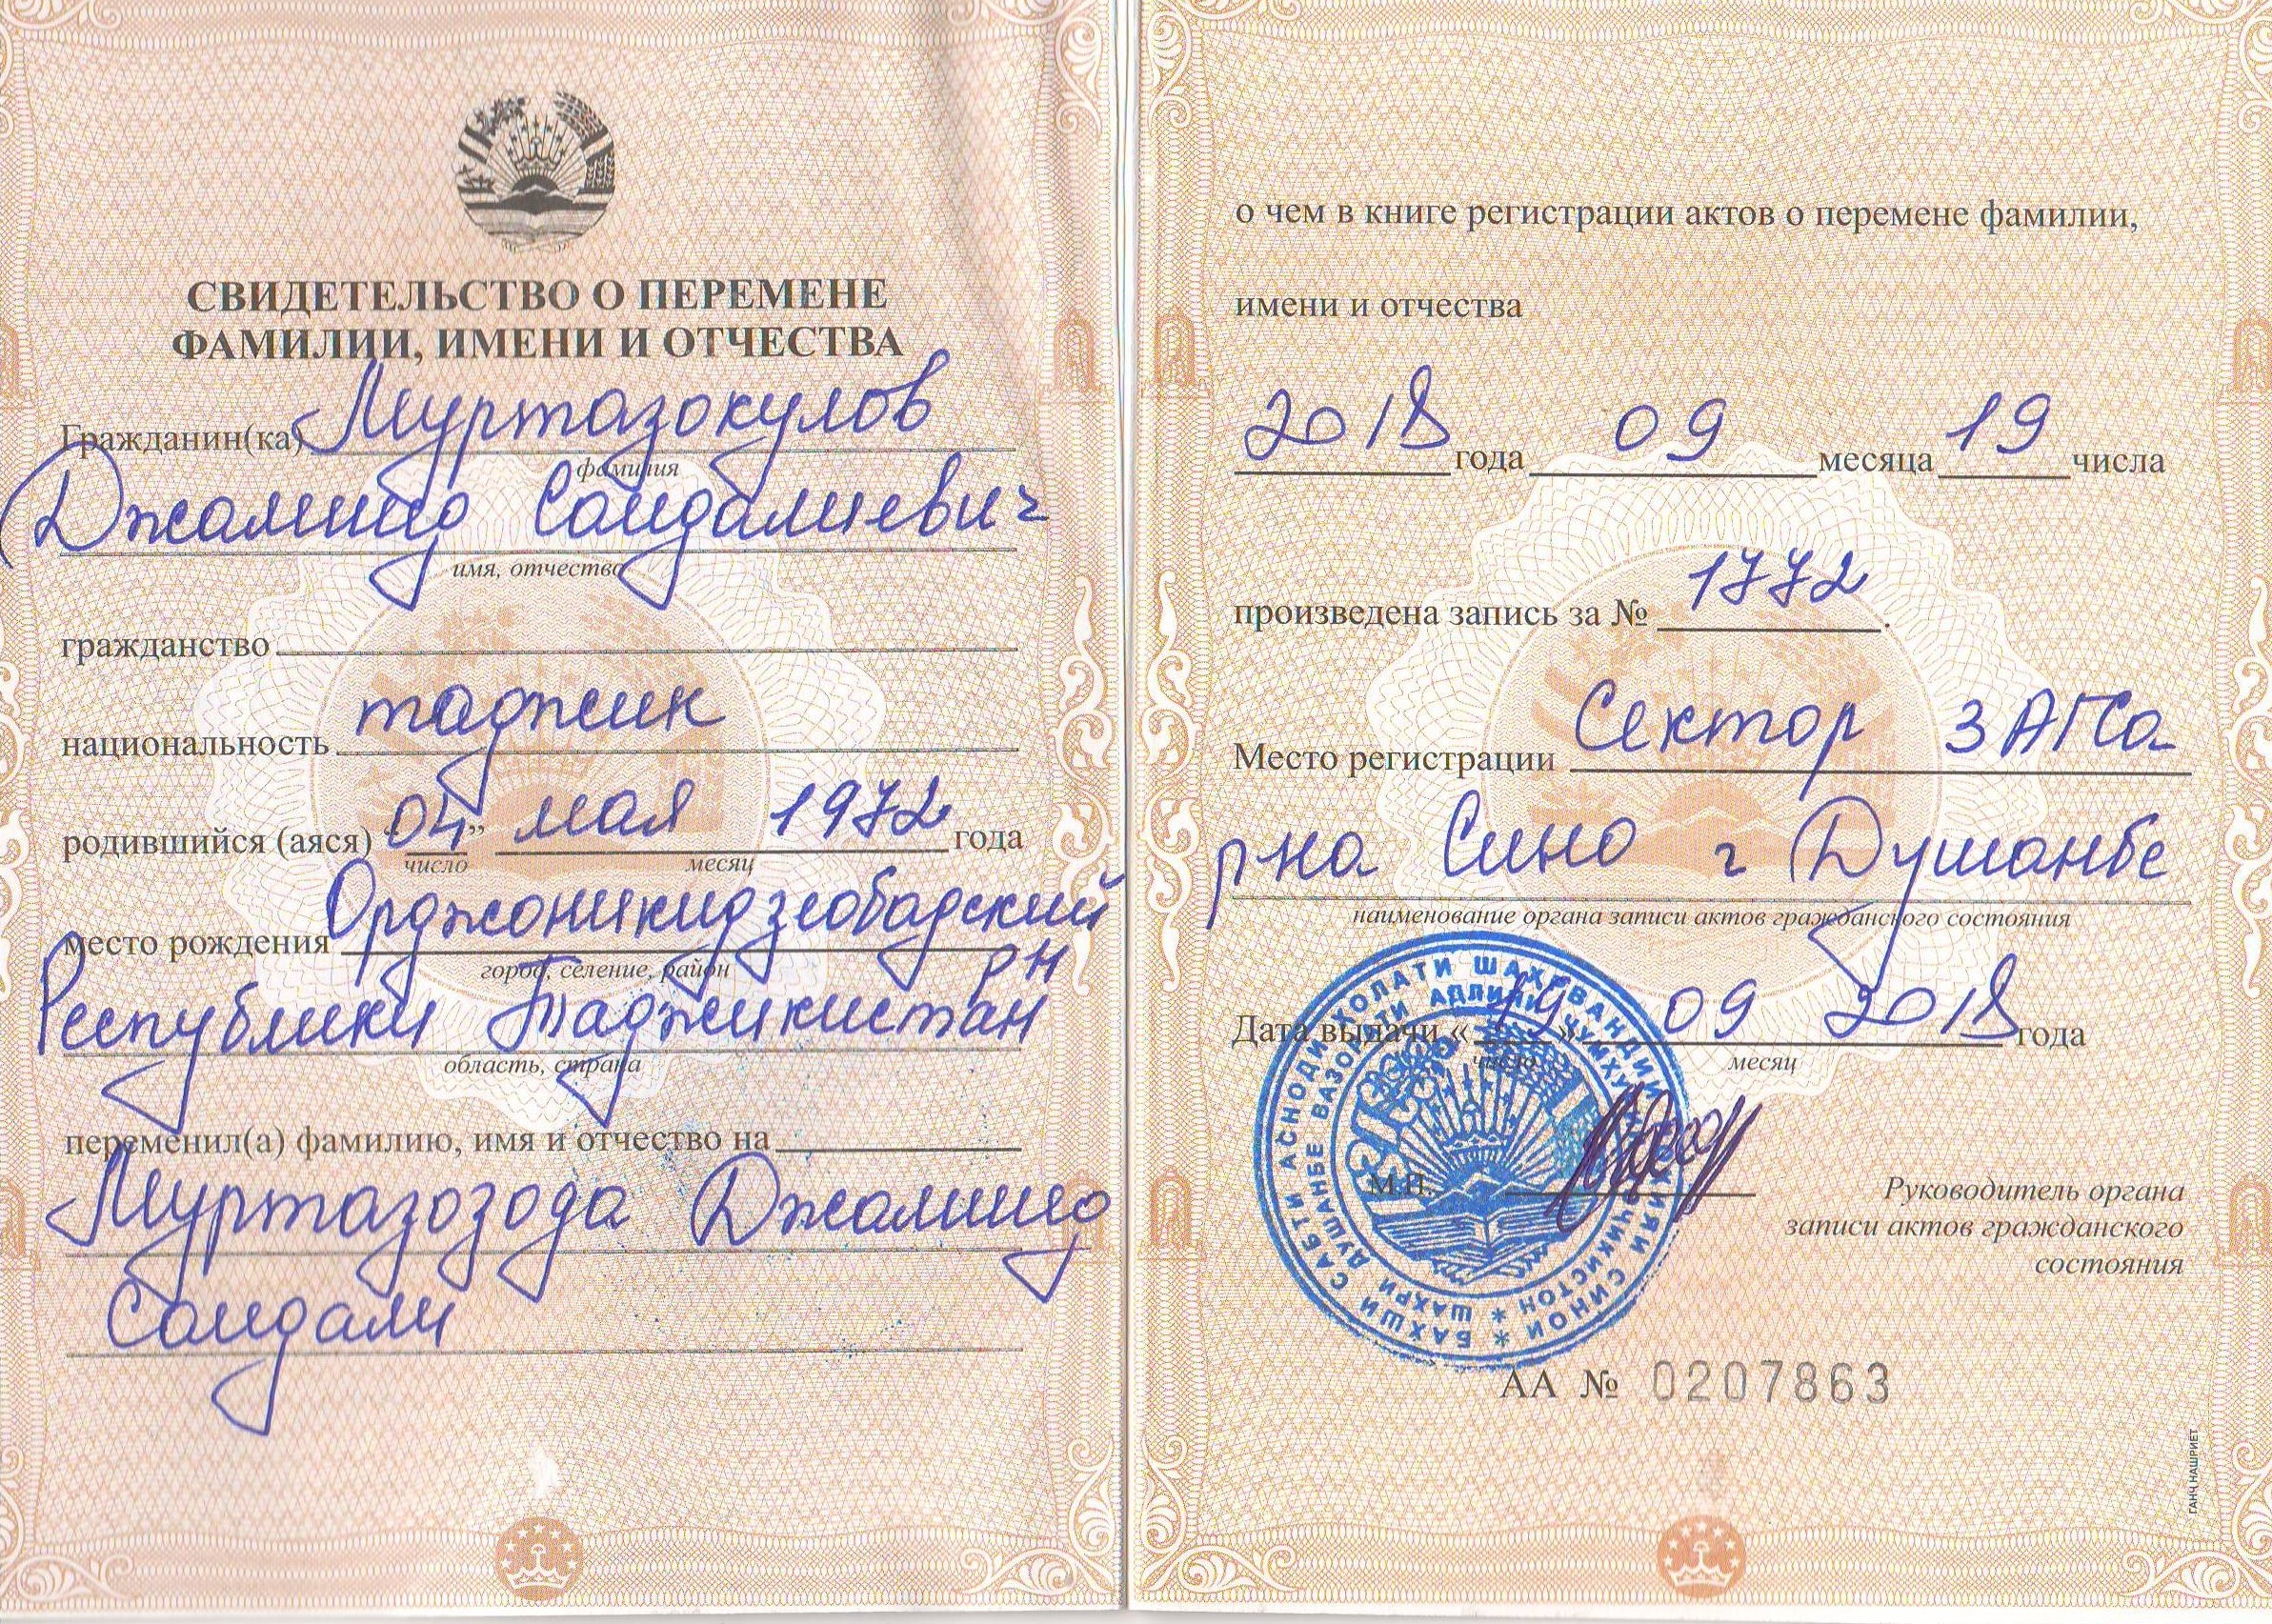 СВИДЕТЕЛЬСТВО О ПЕРЕМЕНЕ
ФАМИЛИИ, ИМЕНИ И ОТЧЕСТВА
Гражданин(ка) Муртазокулов
фамилия
Джамшед Саидалиевич
имя, отчество
гражданство
национальность таджик
родившийся (аяся) "04" мая 1972 года
число месяц
место рождения Орджоникидзеобадский
город, селение, район
рн
Республики Таджикистан
область, страна
переменил(а) фамилию, имя и отчество на
Муртазозода Джамшед
Саидали
о чем в книге регистрации актов о перемене фамилии,
имени и отчества
2018 года 09 месяца 19 числа
произведена запись за № 1772.
Место регистрации Сектор ЗАГСа
р-на Сино г Душанбе
наименование органа записи актов гражданского состояния
Дата выдачи «19» 09 2018 года
число месяц
М.П.
Руководитель органа
записи актов гражданского
состояния
БАХШИ САБТИ АСНОДИ ҲОЛАТИ ШАҲРВАНДИИ НОҲИЯИ СИНОИ
ШАҲРИ ДУШАНБЕ ВАЗОРАТИ АДЛИЯИ ҶУМҲУРИИ ТОҶИКИСТОН
АА № 0207863
ГАНҶ НАШРИЁТ